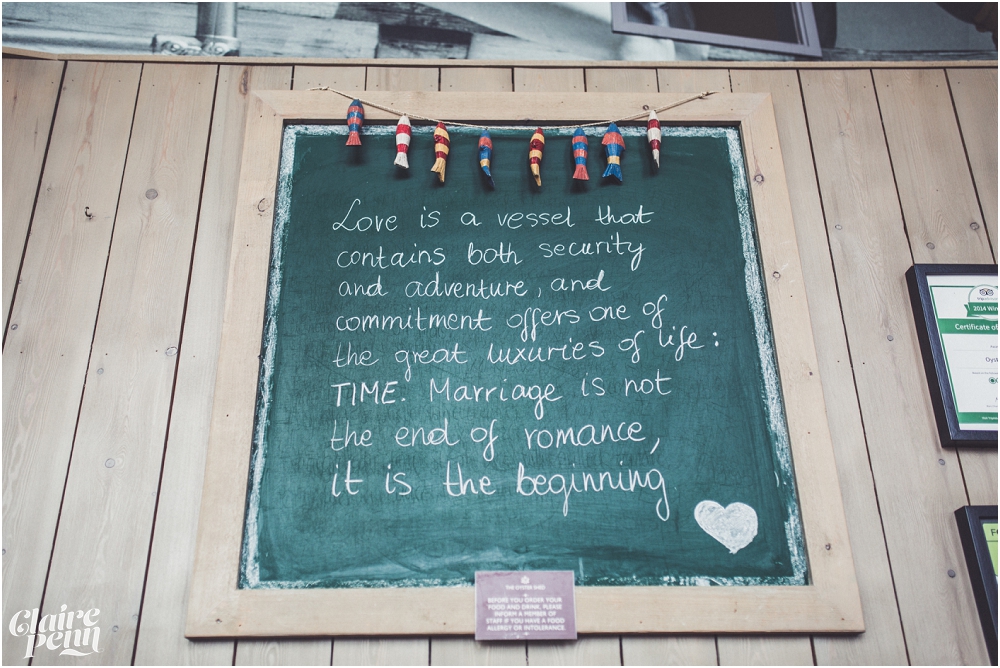 Love is a vessel that
contains both security
and adventure, and
commitment offers one of
the great luxuries of life:
TIME. Marriage is not
the end of romance,
it is the beginning
THE OYSTER SHED
BEFORE YOU ORDER YOUR
FOOD AND DRINK, PLEASE
INFORM A MEMBER OF
STAFF IF YOU HAVE A FOOD
ALLERGY OR INTOLERANCE.
2014 Win
Certificate of
Claire
Penn